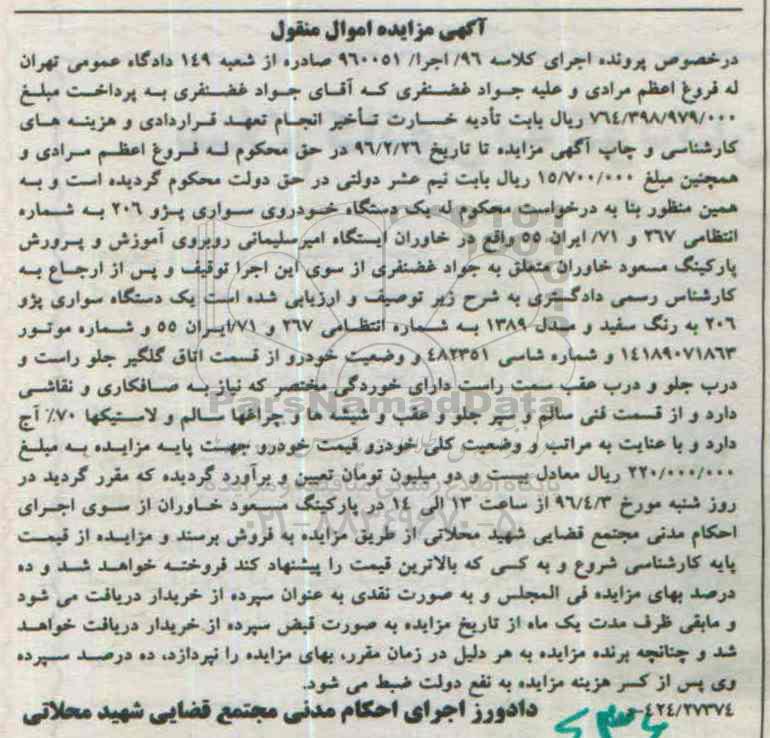 آگهی مزایده اموال منقول
درخصوص پرونده اجرای کلاسه ۹۶/ اجرا/ ۹۶۰۰۵۱ صادره از شعبه ۱۴۹ دادگاه عمومی تهران
له فروغ اعظم مرادی و علیه جواد غضنفری که آقای جواد غضنفری به پرداخت مبلغ
۷۶۴/۳۹۸/۹۷۹/۰۰۰ ریال بابت تأدیه خسارت تأخیر انجام تعهد قراردادی و هزینه های
کارشناسی و چاپ آگهی مزایده تا تاریخ ۹۶/۲/۲۶ در حق محکوم له فروغ اعظم مرادی و
همچنین مبلغ ۱۵/۷۰۰/۰۰۰ ریال بابت نیم عشر دولتی در حق دولت محکوم گردیده است و به
همین منظور بنا به درخواست محکوم له یک دستگاه خودروی سواری پژو ۲۰۶ به شماره
انتظامی ۲۶۷ و ۷۱/ ایران ۵۵ واقع در خاوران ایستگاه امیرسلیمانی روبروی آموزش و پرورش
پارکینگ مسعود خاوران متعلق به جواد غضنفری از سوی این اجرا توقیف و پس از ارجاع به
کارشناس رسمی دادگستری به شرح زیر توصیف و ارزیابی شده است یک دستگاه سواری پژو
۲۰۶ به رنگ سفید و مدل ۱۳۸۹ به شماره انتظامی ۲۶۷ و ۷۱/ایران ۵۵ و شماره موتور
۱۴۱۸۹۰۷۱۸۶۳ و شماره شاسی ۴۸۲۳۵۱ و وضعیت خودرو از قسمت اتاق گلگیر جلو راست و
درب جلو و درب عقب سمت راست دارای خوردگی مختصر که نیاز به صافکاری و نقاشی
دارد و از قسمت فنی سالم و سپر جلو و عقب و شیشه ها و چراغها سالم و لاستیکها ۷۰٪ آج
دارد و با عنایت به مراتب و وضعیت کلی خودرو قیمت خودرو جهت پایه مزایده به مبلغ
۲۲۰/۰۰۰/۰۰۰ ریال معادل بیست و دو میلیون تومان تعیین و برآورد گردیده که مقرر گردید در
روز شنبه مورخ ۹۶/۴/۳ از ساعت ۱۳ الی ۱۴ در پارکینگ مسعود خاوران از سوی اجرای
احکام مدنی مجتمع قضایی شهید محلاتی از طریق مزایده به فروش برسند و مزایده از قیمت
پایه کارشناسی شروع و به کسی که بالاترین قیمت را پیشنهاد کند فروخته خواهد شد و ده
درصد بهای مزایده فی المجلس و به صورت نقدی به عنوان سپرده از خریدار دریافت می شود
و مابقی ظرف مدت یک ماه از تاریخ مزایده به صورت قبض سپرده از خریدار دریافت خواهد
شد و چنانچه برنده مزایده به هر دلیل در زمان مقرر، بهای مزایده را نپردازد، ده درصد سپرده
وی پس از کسر هزینه مزایده به نفع دولت ضبط می شود.
۴۲۴/۲۷۳۷۴-م دادورز اجرای احکام مدنی مجتمع قضایی شهید محلاتی
ParsNamadData
۰۲۱-۸۸۳۴۹۶۷۰-۵